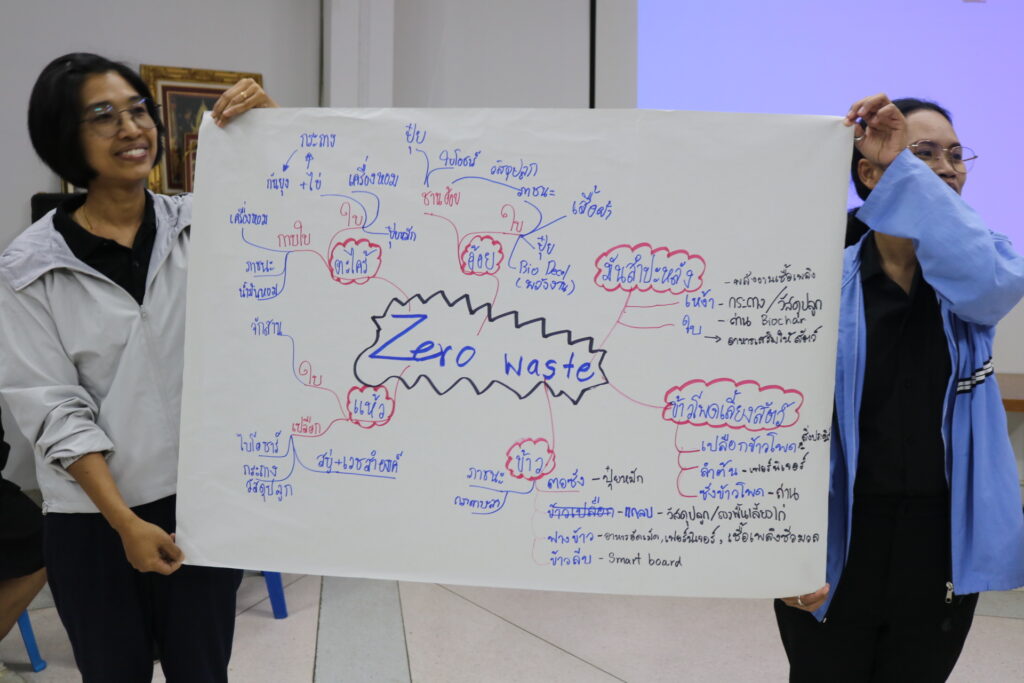 Zero waste
ตะไคร้
ใบ
เครื่องหอม
ปุ๋ยหมัก
กระถาง
กันยุง + ไข่
กาบใบ
เครื่องหอม
ภาชนะ
น้ำมันหอม
อ้อย
ชานอ้อย
ปุ๋ย
ไบโอชาร์
วัสดุปลูก
ใบ
ภาชนะ
เสื้อผ้า
ปุ๋ย
(พลังงาน)
มันสำปะหลัง
- พลังงานเชื้อเพลิง
เหง้า - กระถาง/วัสดุปลูก
ใบ - ถ่าน Biochar
→ อาหารเสริมให้สัตว์
ข้าวโพดเลี้ยงสัตว์
เปลือกข้าวโพด - สิ่งประดิษฐ์
ลำต้น - เฟอร์นิเจอร์
ซังข้าวโพด - ถ่าน
ข้าว
ภาชนะ
ตอซัง - ปุ๋ยหมัก
ข้าวเปลือก - แกลบ - วัสดุปลูก/
ฟางข้าว - อาหารอัดเม็ด, เฟอร์นิเจอร์, เชื้อเพลิงชีวมวล
ข้าวลีบ - Smart board
แห้ว
ใบ
จักสาน
เปลือก
ไบโอชาร์
กระถาง
วัสดุปลูก
สบู่ + เวชสำอางค์